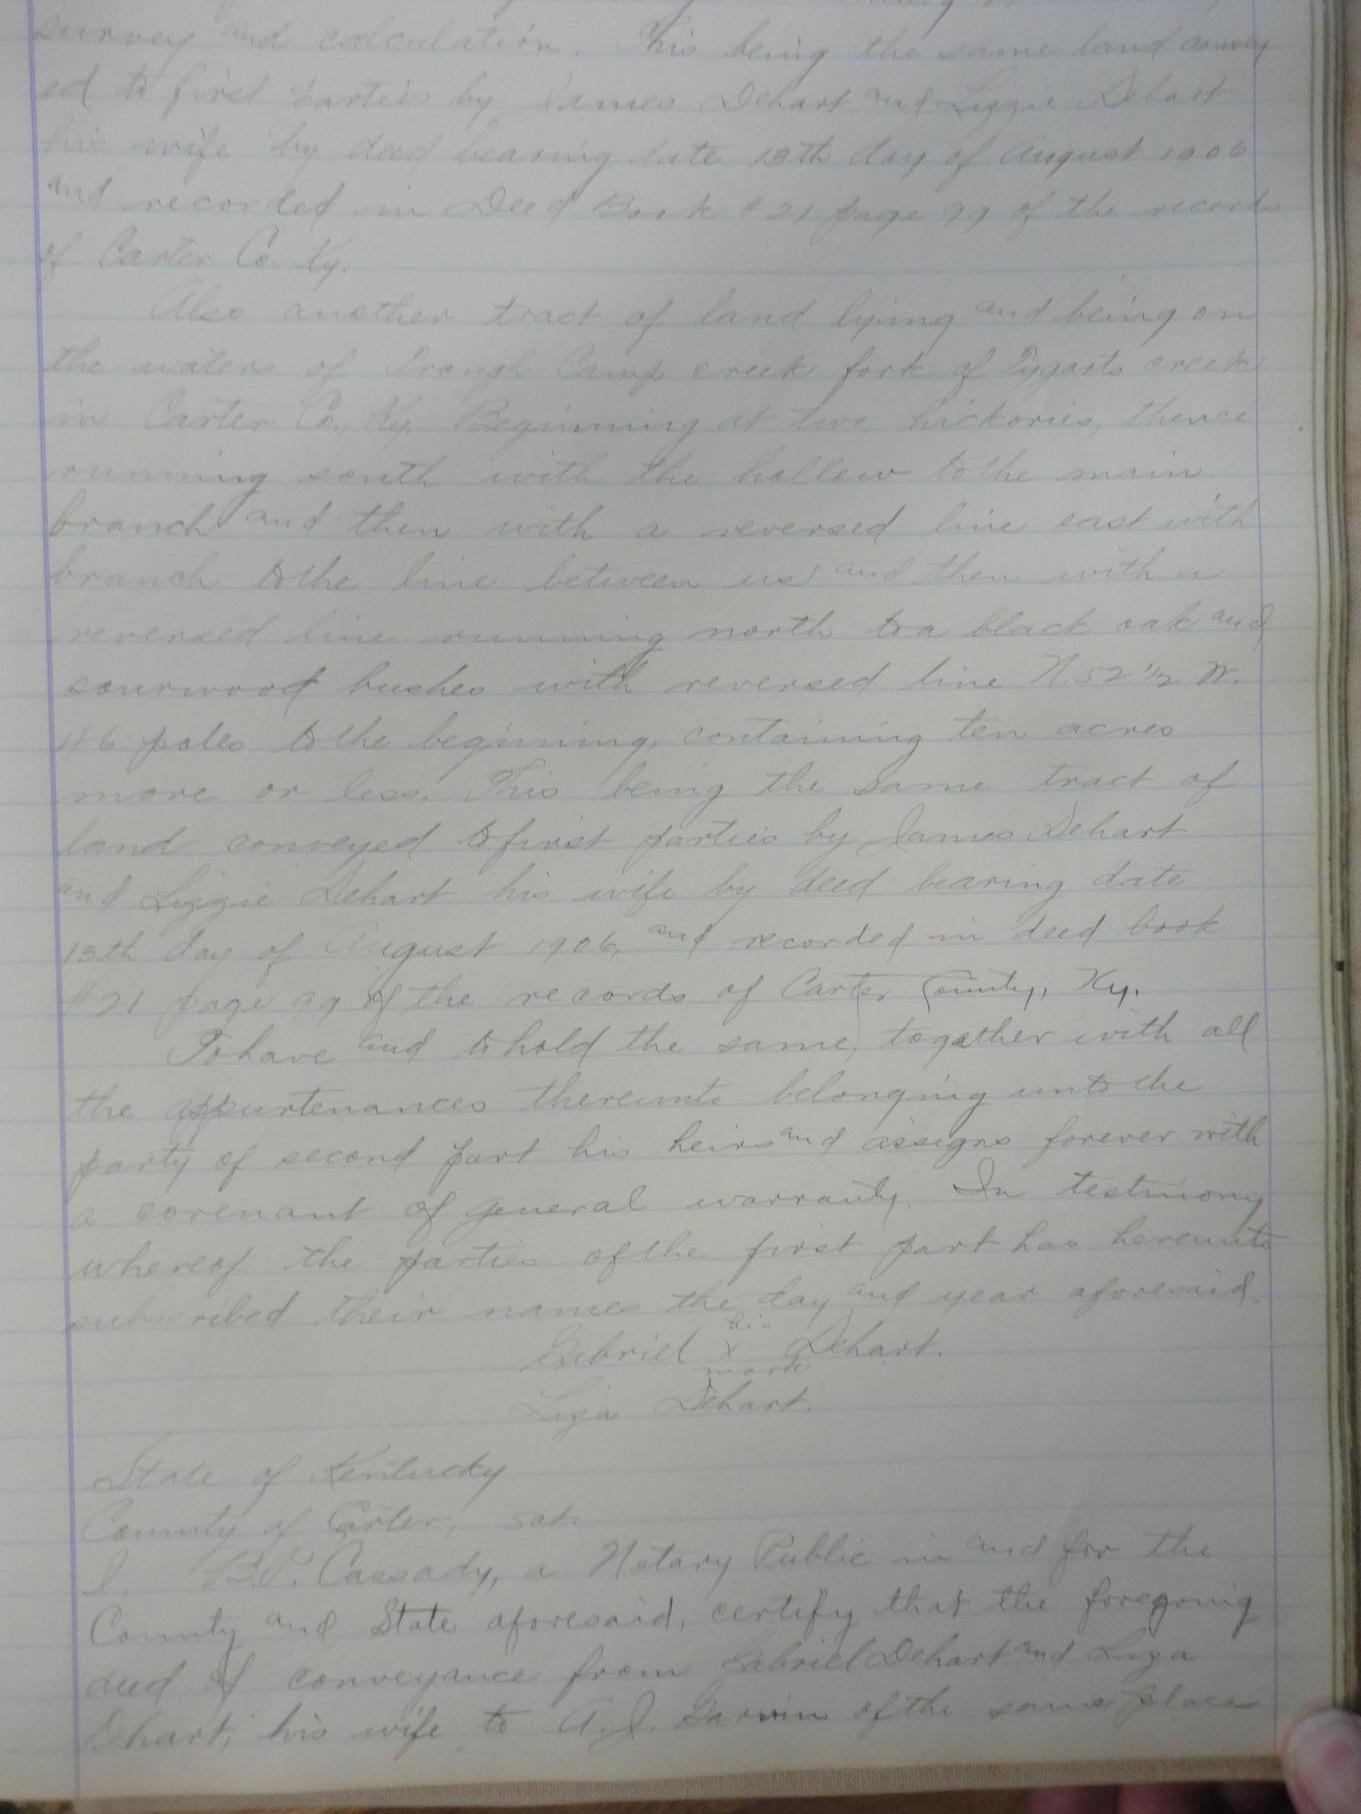 survey and calculation. This being the same land convey
ed to first parties by James Dehart and Lizzie Dehart
his wife by deed bearing date 13th day of August 1906
and recorded in Deed Book #21 page 99 of the records
of Carter Co. Ky.
Also another tract of land lying and being on
the waters of Camp creek fork of Tygarts creek
in Carter Co. Ky. Beginning at two hickories, thence
running south with the hollow to the main
branch and then with a reversed line east with
branch to the line between us and then with a
reversed line running north to a black oak and
sourwood bushes with reversed line N. 52 1/2 W.
46 poles to the beginning, containing ten acres
more or less. This being the same tract of
land conveyed to first parties by James Dehart
and Lizzie Dehart his wife by deed bearing date
13th day of August 1906, and recorded in deed book
#21 page 99 of the records of Carter County, Ky.
To have and to hold the same, together with all
the appurtenances thereunto belonging unto the
party of second part his heirs and assigns forever with
a covenant of general warranty. In testimony
whereof the parties of the first part has hereunto
subscribed their names the day and year aforesaid.
his
Gabriel x Dehart.
mark
Liza Dehart.
State of Kentucky
County of Carter, sct.
I. B.P. Cassady, a Notary Public in and for the
County and State aforesaid, certify that the foregoing
deed of conveyance from Gabriel Dehart and Liza
Dhart, his wife to A.J. of the same place